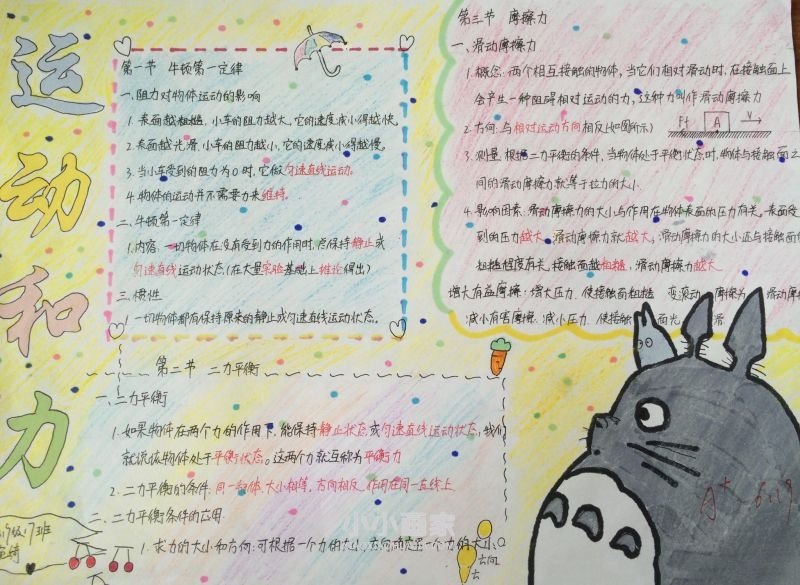 运动和力
第一节 牛顿第一定律
一.阻力对物体运动的影响
1.表面越粗糙,小车的阻力越大,它的速度减小得越快。
2.表面越光滑,小车的阻力越小,它的速度减小得越慢。
3.当小车受到的阻力为0时,它做匀速直线运动。
4.物体的运动并不需要力来维持。
二.牛顿第一定律
1.内容:一切物体在没有受到力的作用时,总保持静止或
匀速直线运动状态(在大量实验基础上推论得出)
三.惯性
1.一切物体都有保持原来的静止或匀速直线运动状态。
第二节 二力平衡
一.二力平衡
1.如果物体在两个力的作用下,能保持静止状态或匀速直线运动状态,我们
就说该物体处于平衡状态。这两个力就互称为平衡力
2.二力平衡的条件:同一物体、大小相等、方向相反、作用在同一直线上
二.二力平衡条件的应用
1.求力的大小和方向:可根据一个力的大小、方向确定另一个力的大小、
方向
第三节 摩擦力
一、滑动摩擦力
1.概念:两个相互接触的物体,当它们相对滑动时,在接触面上
会产生一种阻碍相对运动的力,这种力叫作滑动摩擦力
2.方向:与相对运动方向相反(如图所示)
A V
3.测量:根据二力平衡的条件,当物体处于平衡状态时,物体与接触面之
间的滑动摩擦力就等于拉力的大小.
4.影响因素:滑动摩擦力的大小与作用在物体表面的压力有关,表面受
到的压力越大,滑动摩擦力就越大;滑动摩擦力的大小还与接触面的
粗糙程度有关,接触面越粗糙,滑动摩擦力越大
增大有益摩擦:增大压力、使接触面粗糙、变滚动摩擦为滑动摩
减小有害摩擦:减小压力、使接触面光滑
A+ 6.19
17班
小小画家